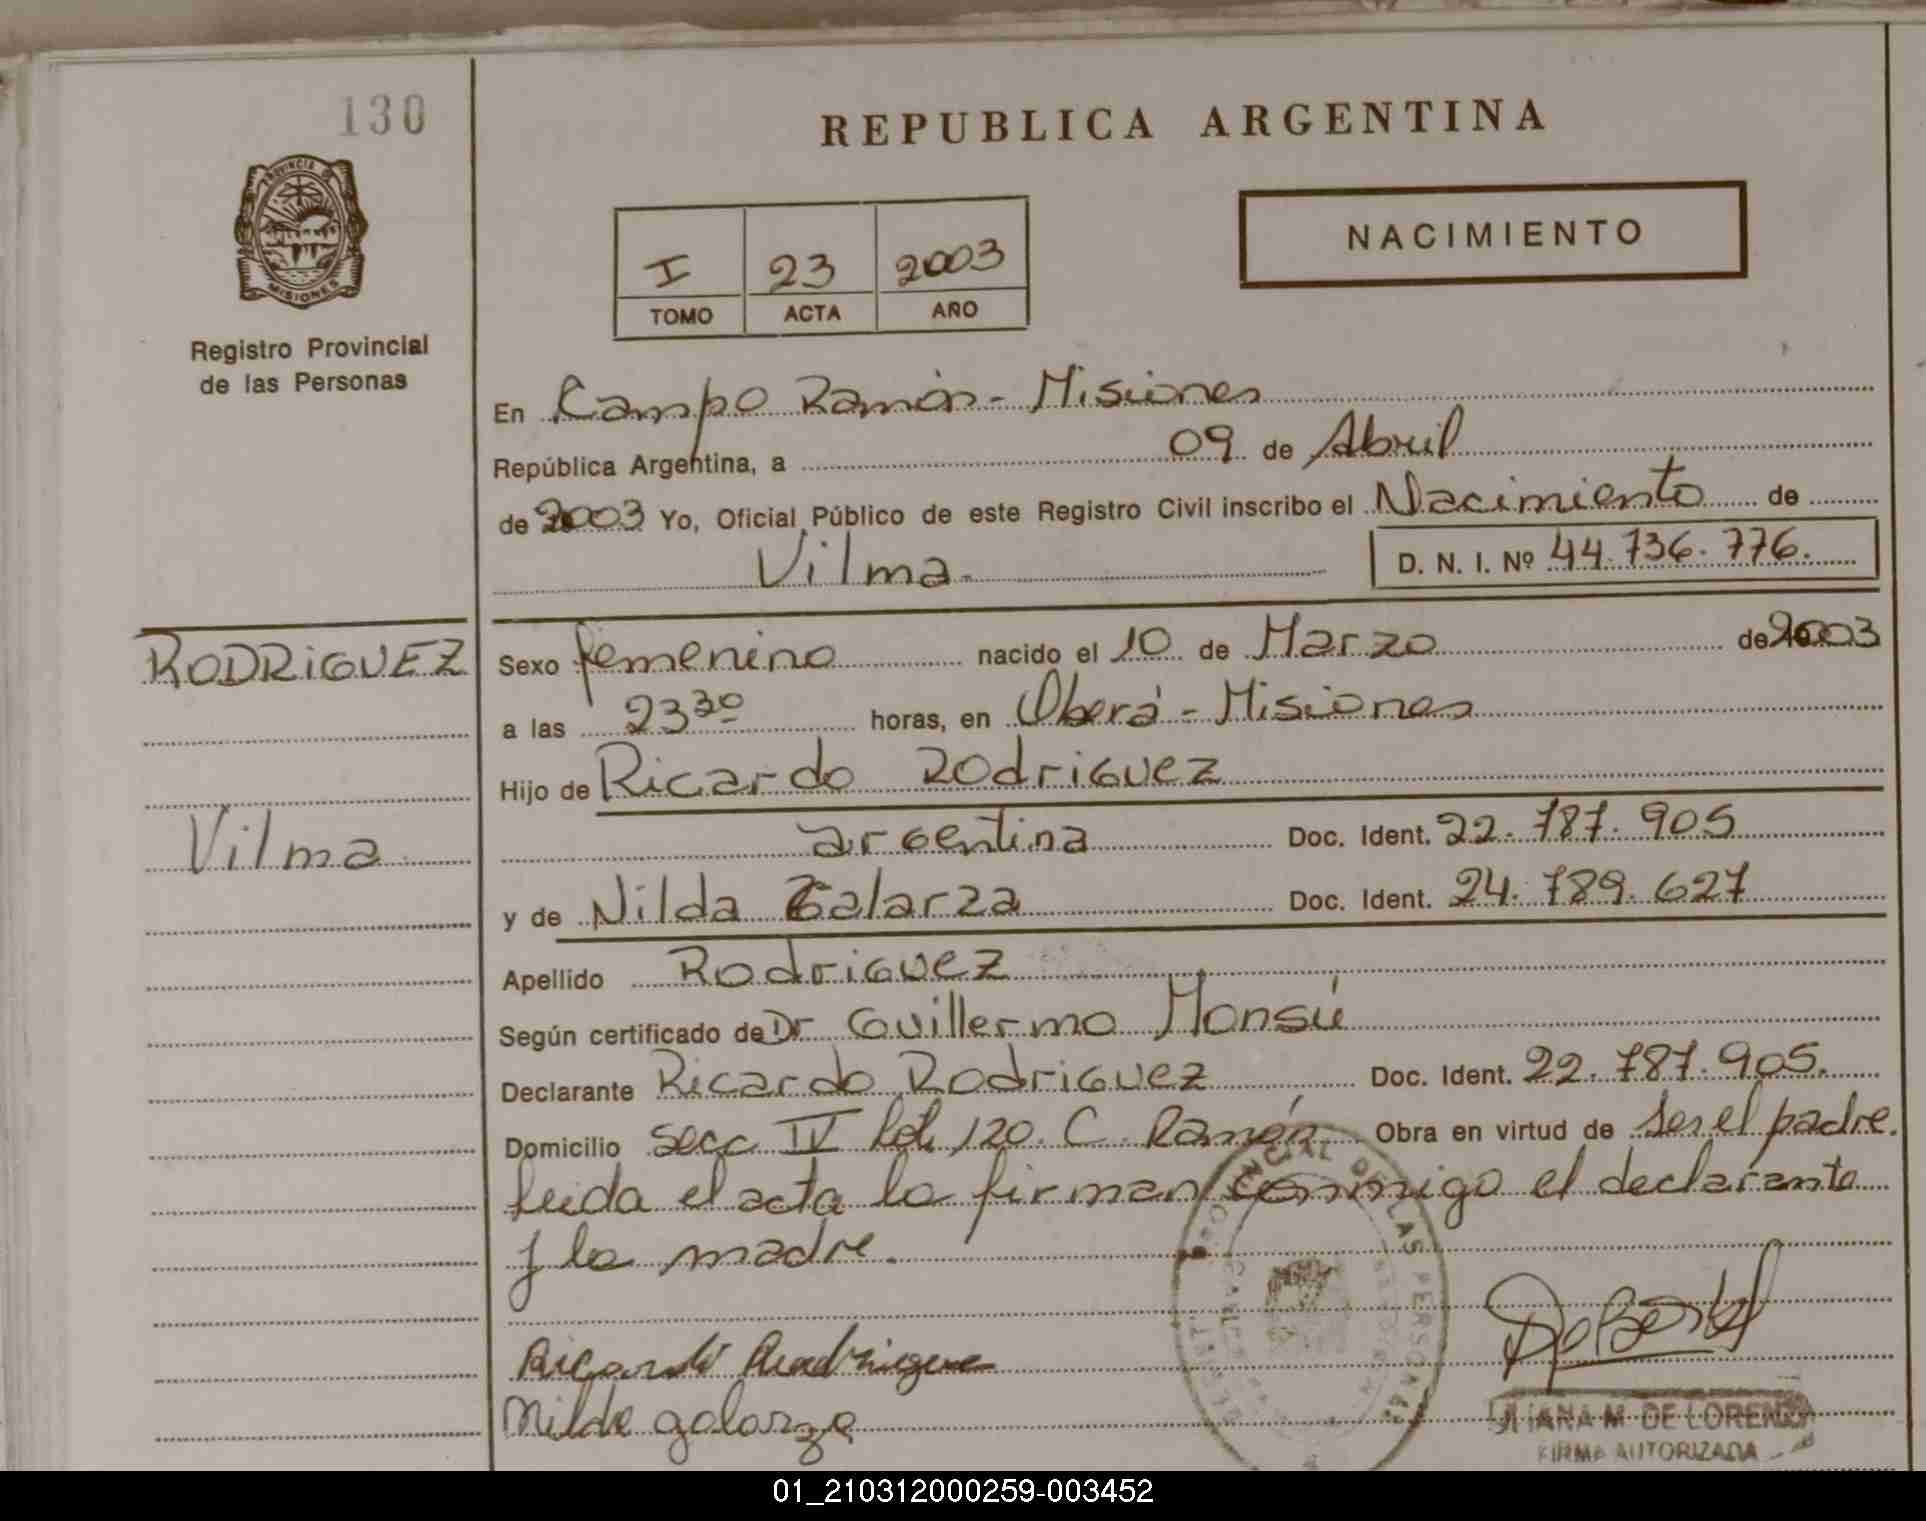 130
REPUBLICA ARGENTINA
PROVINCIA DE
MISIONES
Registro Provincial
de las Personas
I 23 2003
TOMO ACTA AÑO
NACIMIENTO
En Campo Ramón - Misiones
República Argentina, a 09 de Abril
de 2003 Yo, Oficial Público de este Registro Civil inscribo el Nacimiento de
Vilma.
D. N. I. Nº 44.736.776.
RODRIGUEZ
Vilma
Sexo femenino nacido el 10 de Marzo de 2003
a las 23 30 horas, en Oberá - Misiones
Hijo de Ricardo Rodriguez
argentina Doc. Ident. 22.787.905
y de Nilda Galarza Doc. Ident. 24.789.627
Apellido Rodriguez
Según certificado de Dr Guillermo Monsú
Declarante Ricardo Rodriguez Doc. Ident. 22.787.905.
Domicilio Secc IV Lot. 120. C. Ramón Obra en virtud de ser el padre.
Leida el acta la firman conmigo el declarante
y la madre.
DE LAS PERSONAS
Nilda galarza
JULIANA M. DE LORENZO
FIRMA AUTORIZADA
01_210312000259-003452